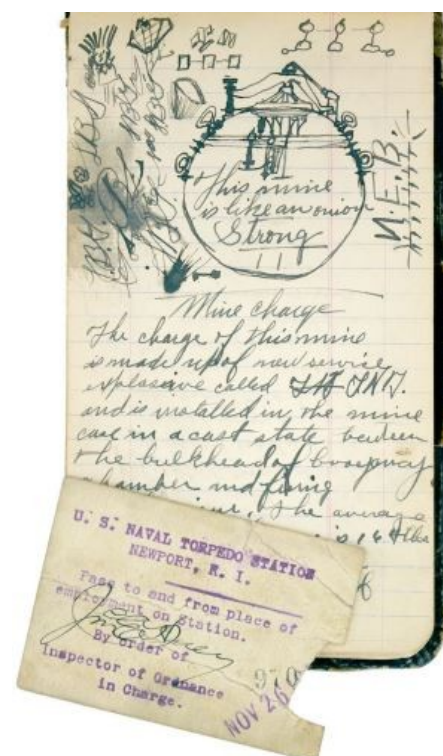 N.E.B.
This mine
is like an onion
Strong
Mine charge
The charge of this mine
is made up of new service
explosive called TNT.
and is installed in the mine
case in a cast state between
the bulkhead of buoyancy
chamber and firing
The average
is
U. S. NAVAL TORPEDO STATION
NEWPORT, R. I.
Pass to and from place of
employment on Station.
By order of
Inspector of Ordnance
in Charge.
NOV 26